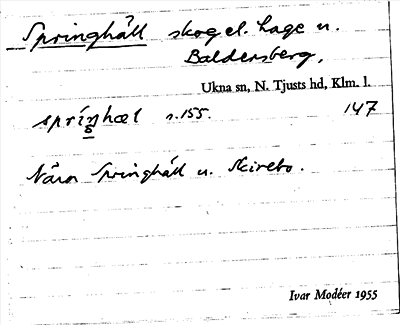 Springhåll skog el. hage u.
Baldersberg,
Ukna sn, N. Tjusts hd, Klm. l.
spríŋhæl s. 155. 147
Nära Springhåll u. Skirebo.
Ivar Modéer 1955